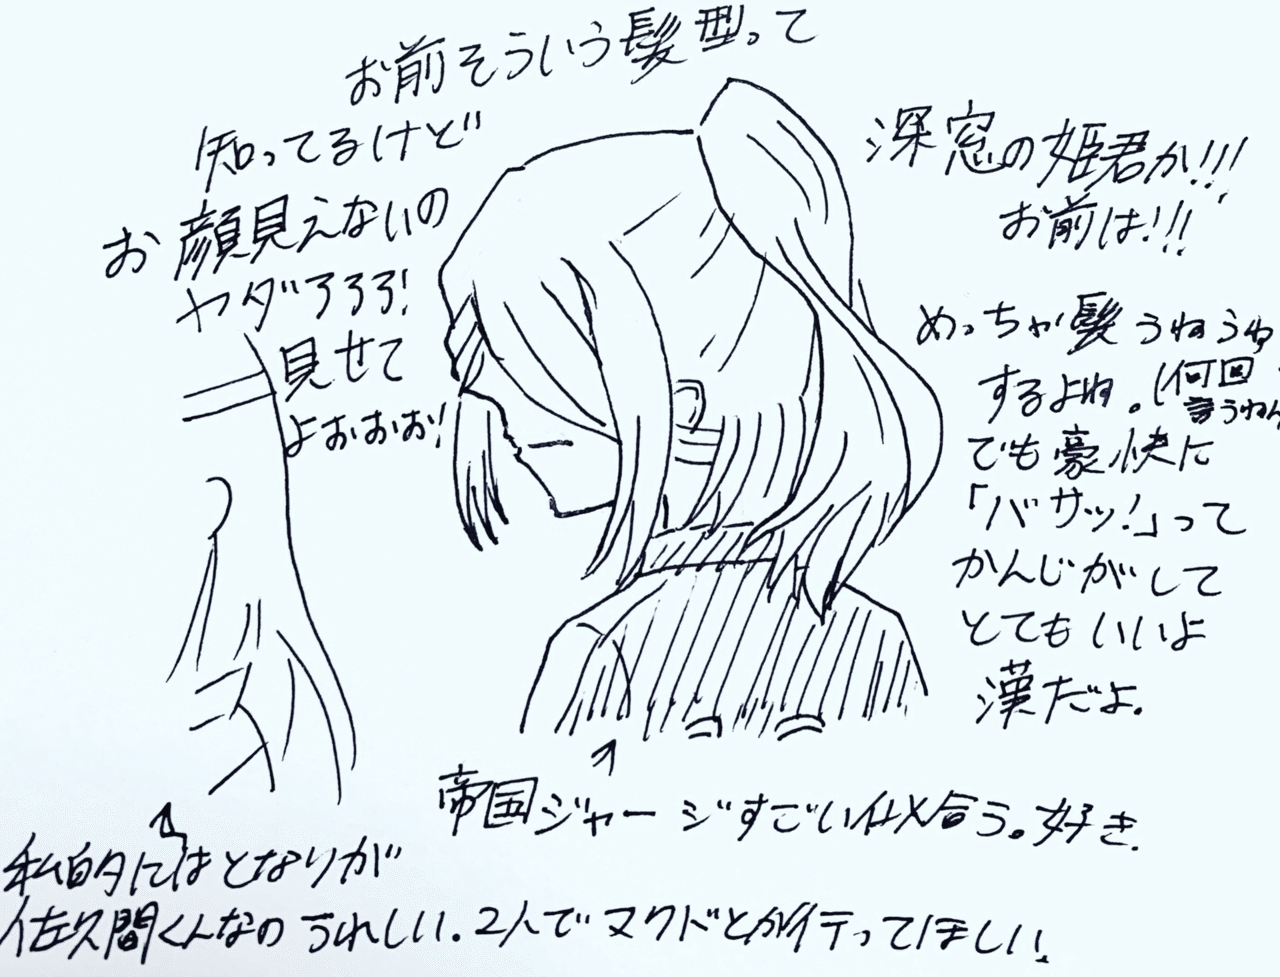 お前そういう髪型って
知ってるけど
お顔見えないの
ヤダろろろ!
見せて
よおおお!
深窓の姫君か!!!
お前は!!!
めっちゃ髪うねうね
するよね。(何回
言うねん
でも豪快に
「バサッ!」って
かんじがして
とてもいいよ
漢だよ.
帝国ジャージすごい似合う。好き.
私的にはとなりが
佐久間くんなのうれしい.2人でマクドとか行ってほしい.